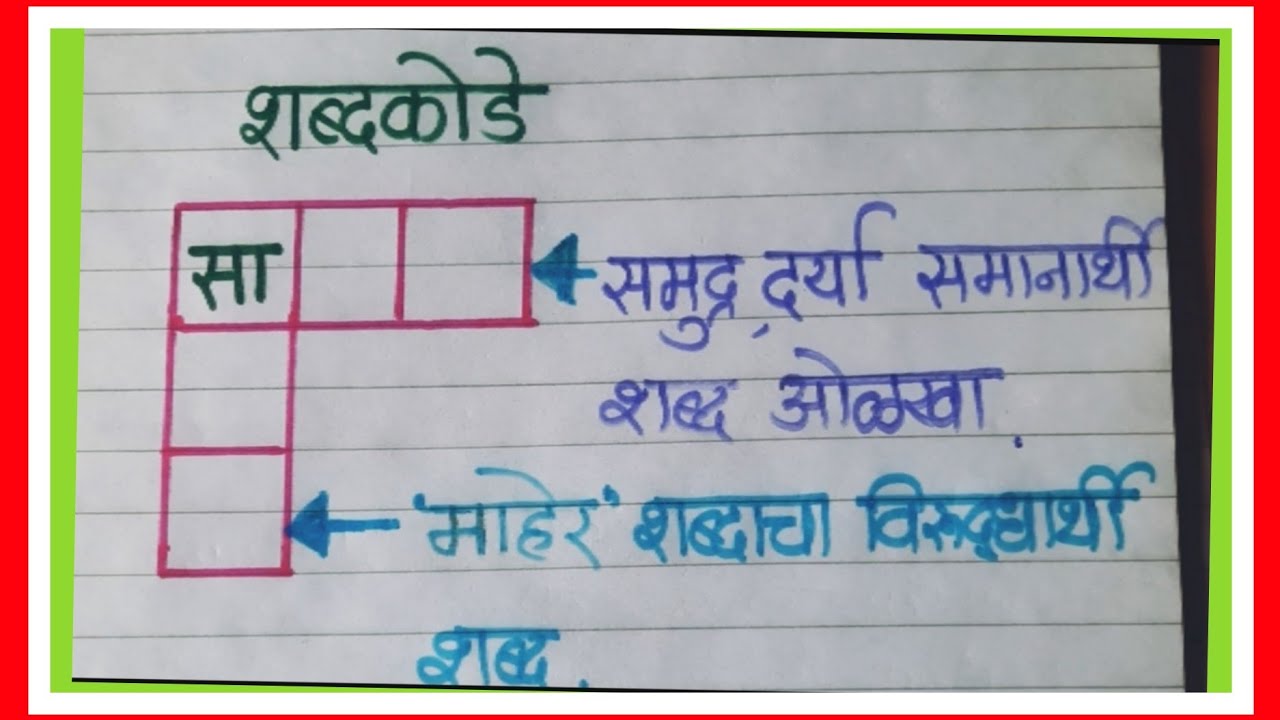 शब्दकोडे
सा
समुद्र, दर्या समानार्थी
शब्द ओळखा.
'माहेर' शब्दाचा विरुद्धार्थी
शब्द.